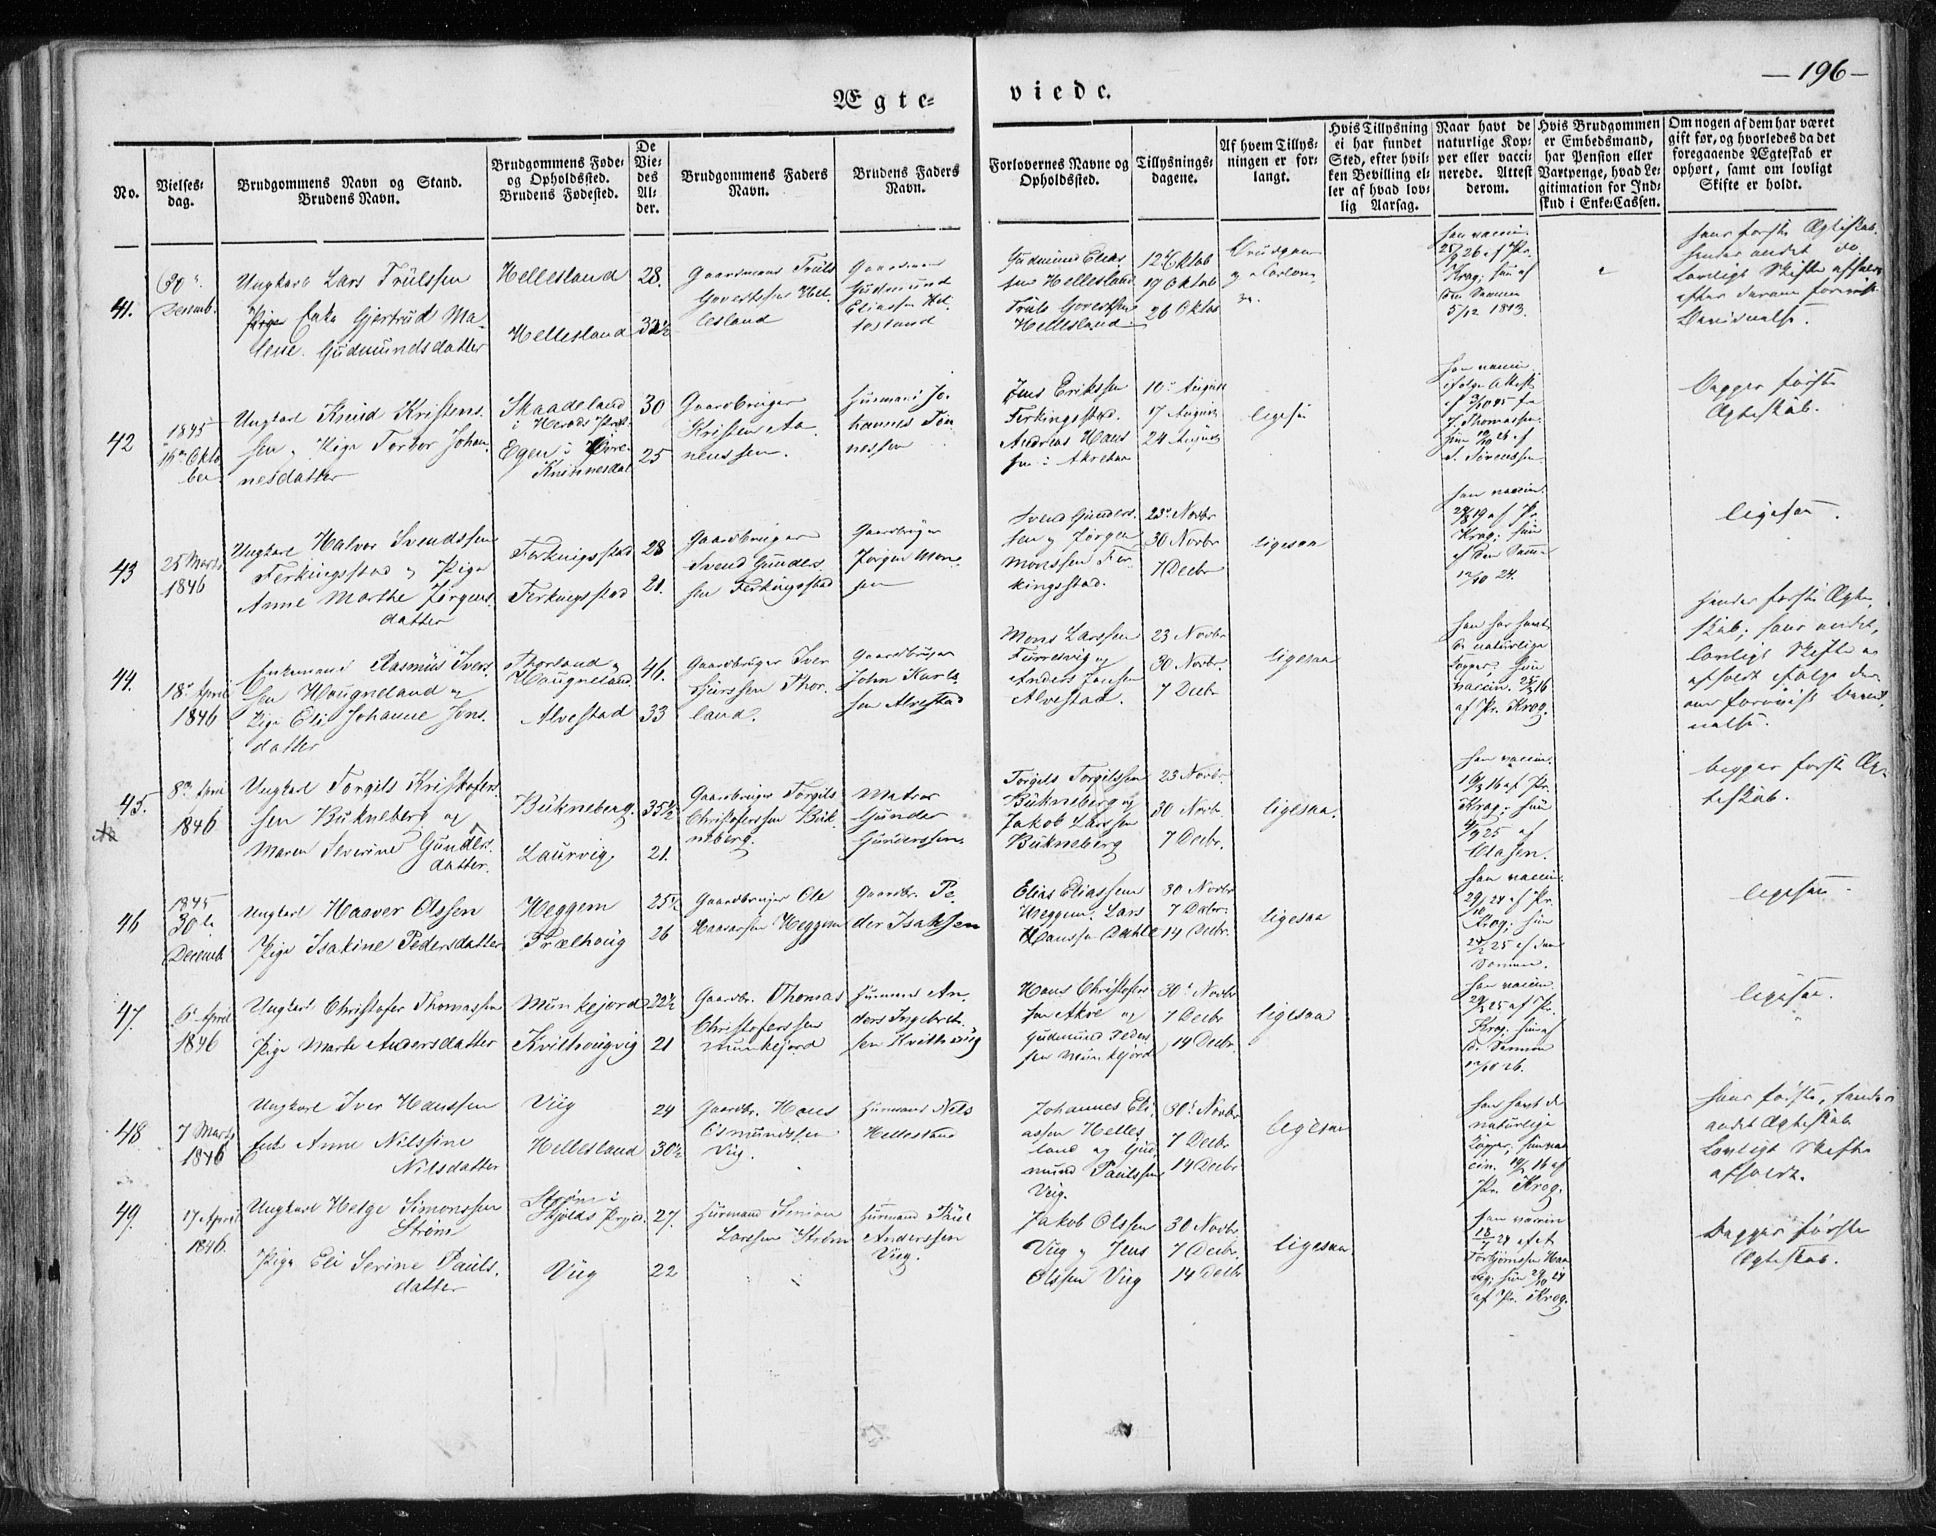 — 196 —
Ægte- viede.
No.
Vielses-
dag.
Brudgommens Navn og Stand.
Brudens Navn.
Brudgommens Føde-
og Opholdssted.
Brudens Fødested.
De
Vie-
des
Al-
der.
Brudgommens Faders
Navn.
Brudens Faders
Navn.
Forlovernes Navne og
Opholdssted.
Tillysnings-
dagene.
Af hvem Tillys-
ningen er for-
langt.
Hvis Tillysning
ei har fundet
Sted, efter hvil-
ken Bevilling el-
ler af hvad lov-
lig Aarsag.
Naar havt de
naturlige Kop-
per eller vacci-
nerede. Attest
derom.
Hvis Brudgommen
er Embedsmand,
har Pension eller
Vartpenge, hvad Le-
gitimation for Ind-
skud i Enke-Cassen.
Om nogen af dem har været
gift før, og hvorledes da det
foregaaende Ægteskab er
ophørt, samt om lovligt
Skifte er holdt.
41.
Decemb.
Ungkarl Lars Trulssen
Enke Gjertrud Ma-
lene Gudmundsdatter
Hellesland
Hellesland
28.
Gaardmand Truls
Govertsen Hel-
lesland
Gaardmand
Gudmund
Eliassen Hel-
lesland
Gudmund Elias-
sen Hellesland
Truls Govertsen
Hellesland
12 Oktob
26 Oktob
han vaccin.
Krog; hun af
den Samme
5/12 1813.
hans første Ægteskab.
hendes andet do
Lovligt Skifte afholdt
42
1845
Oktober
Ungkarl Knud Kristens-
sen, Pige Torbor Johan-
nesdatter
Skaadeland
30
25
Gaardbruger
Kristen Aa-
nenssen.
Huusmand Jo-
hannes Tøn-
nessen
Jens Erikssen
Ferkingstad.
Andreas Hans-
sen i Akrehavn
10 August
17 August
24 August
ligesaa
Begges første
Ægteskab.
43
25 Marts
1846
Ungkarl Halvor Svendssen
Ferkingstad og Pige
Anne Marthe Jørgens-
datter
Ferkingstad
Ferkingstad
28
21.
Gaardbruger
Svend Gunders-
sen Ferkingstad
Gaardbruger
Jørgen Mon-
sen
Svend Gunders-
sen og Jørgen
Monssen Fer-
kingstad.
23 Novbr
30 Novbr
7 Decbr
ligesaa
han vaccin.
Krog; hun
af den Samme
12/10 24.
ligesaa.
44.
18 April
1846
Enkemand Rasmus Ivers-
sen Haugneland og
Pige Eli Johanne Jons-
datter
Thorland og
Haugneland
Alvestad
46.
33
Gaardbruger Iver
Thor-
land.
Gaardbruger
John Karls-
sen Alvestad
Mons Larssen
Furresvig og
Anders Jonsen
Alvestad.
23 Novbr
30 Novbr.
7 Decbr
ligesaa
han har havt
de naturlige
Kopper; hun
vaccin.
af Pr. Krog.
hendes første Ægte-
skab; hans andet,
lovligt Skifte er
afholdt ifølge den
45.
8 April
1846
Ungkarl Torgils Kristofers-
sen Bukneberg og
Maren Severine Gunders-
datter.
Bukneberg.
Laurvig.
35½
21.
Gaardbruger Torgils
Christoferssen Buk-
neberg.
Matros
Gunder
Gunderssen.
Torgils Torgilssen
Bukneberg og
Jakob Larssen
Bukneberg
23 Novbr.
30 Novbr.
7 Decbr.
ligesaa.
han vaccin.
Krog; hun
Clasen.
begges første Æg-
teskab.
46
1845
30te
Decemb.
Ungkarl Haaver Olssen
Pige Isakine Pedersdatter
Heggem
Trælhoug
25½
26
Gaardbruger Ole
Haaversen Heggem
Gaardbr. Pe-
der Isaksen
Elias Eliassen
Heggem, Lars
Hanssen Dahle
30 Novbr
7 Decbr.
14 Decbr.
ligesaa
han vaccin.
Krog; hun
Samme.
ligesaa.
47.
6 April
1846
Ungkarl Christofer Thomassen
Pige Marte Andersdatter
Munkejord
Kvilhougvig
22½
21
Gaardbr. Thomas
Christoferssen
Munkejord
Huusmand An-
ders Ingebret-
sen
Hans Christofers-
sen Akre og
Gudmund Peders-
sen Munkejord
30 Novbr
7 Decbr
14 Decbr.
ligesaa
han vaccin.
Krog; hun af
den Samme
ligesaa.
48
7 Marts
1846
Ungkarl Iver Hanssen
Enke Anne Nilssine
Nilsdatter
Viig
Hellesland
24
30½
Gaardbr. Hans
Osmundssen
Viig.
Huusmand Nils
Hellesland
Johannes Eli-
assen Helles-
land og Gud-
mund Paulssen
Viig.
30 Novbr
7 Decbr
14 Decbr
ligesaa
han havt de
naturlige
Kopper, hun vac-
cin.
Pr. Krog.
hans første, hendes
andet Ægteskab
Lovligt Skifte
afholdt.
49.
17 April
1846.
Ungkarl Helge Simonssen
Strøm
Pige Eli Serine Pauls-
datter
Strøm i
Skjolds Præstegj.
Viig
27.
22
Huusmand Simon
Larssen Strøm
Huusmand Paul
Anderssen
Viig.
Jakob Olssen
Viig og Jens
Olssen Viig
30 Novbr.
7 Decbr.
14 Decbr
ligesaa
han vaccin
af Pr. Krog.
Begges første
Ægteskab.